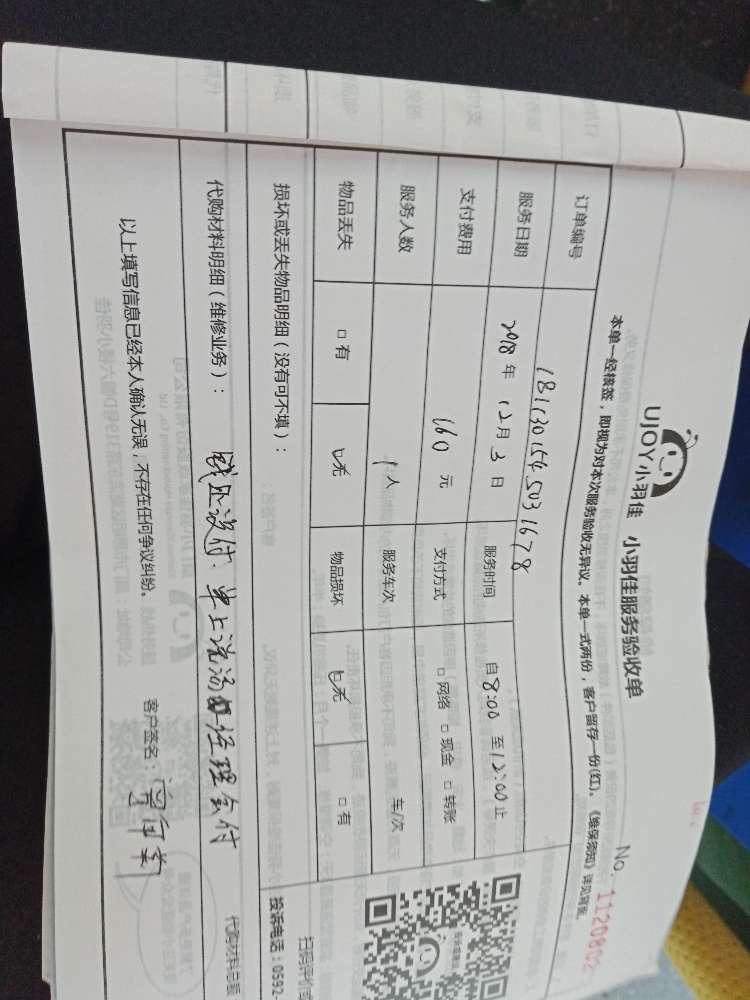 UJOY小羽佳 小羽佳服务验收单 No. 1120802
本单一经核签，即视为对本次服务验收无异议。本单一式两份，客户留存一份(红)。《维保须知》详见背面。
订单编号 1811301545031678
服务日期 2018年 12月 3日 服务时间 自 8:00 至 12:00 止
支付费用 160 元 支付方式 □网络 □现金 □转账
服务人数 1人 服务车次 车/次
物品丢失 □有 □无 物品损坏 □无 □有
损坏或丢失物品明细（没有可不填）：
扫码评价
投诉电话：0592-
代购材料明细（维修业务）： 代购材料总额
钱还没付，单上说汤经理会付
以上填写信息已经本人确认无误，不存在任何争议纠纷。 客户签名：